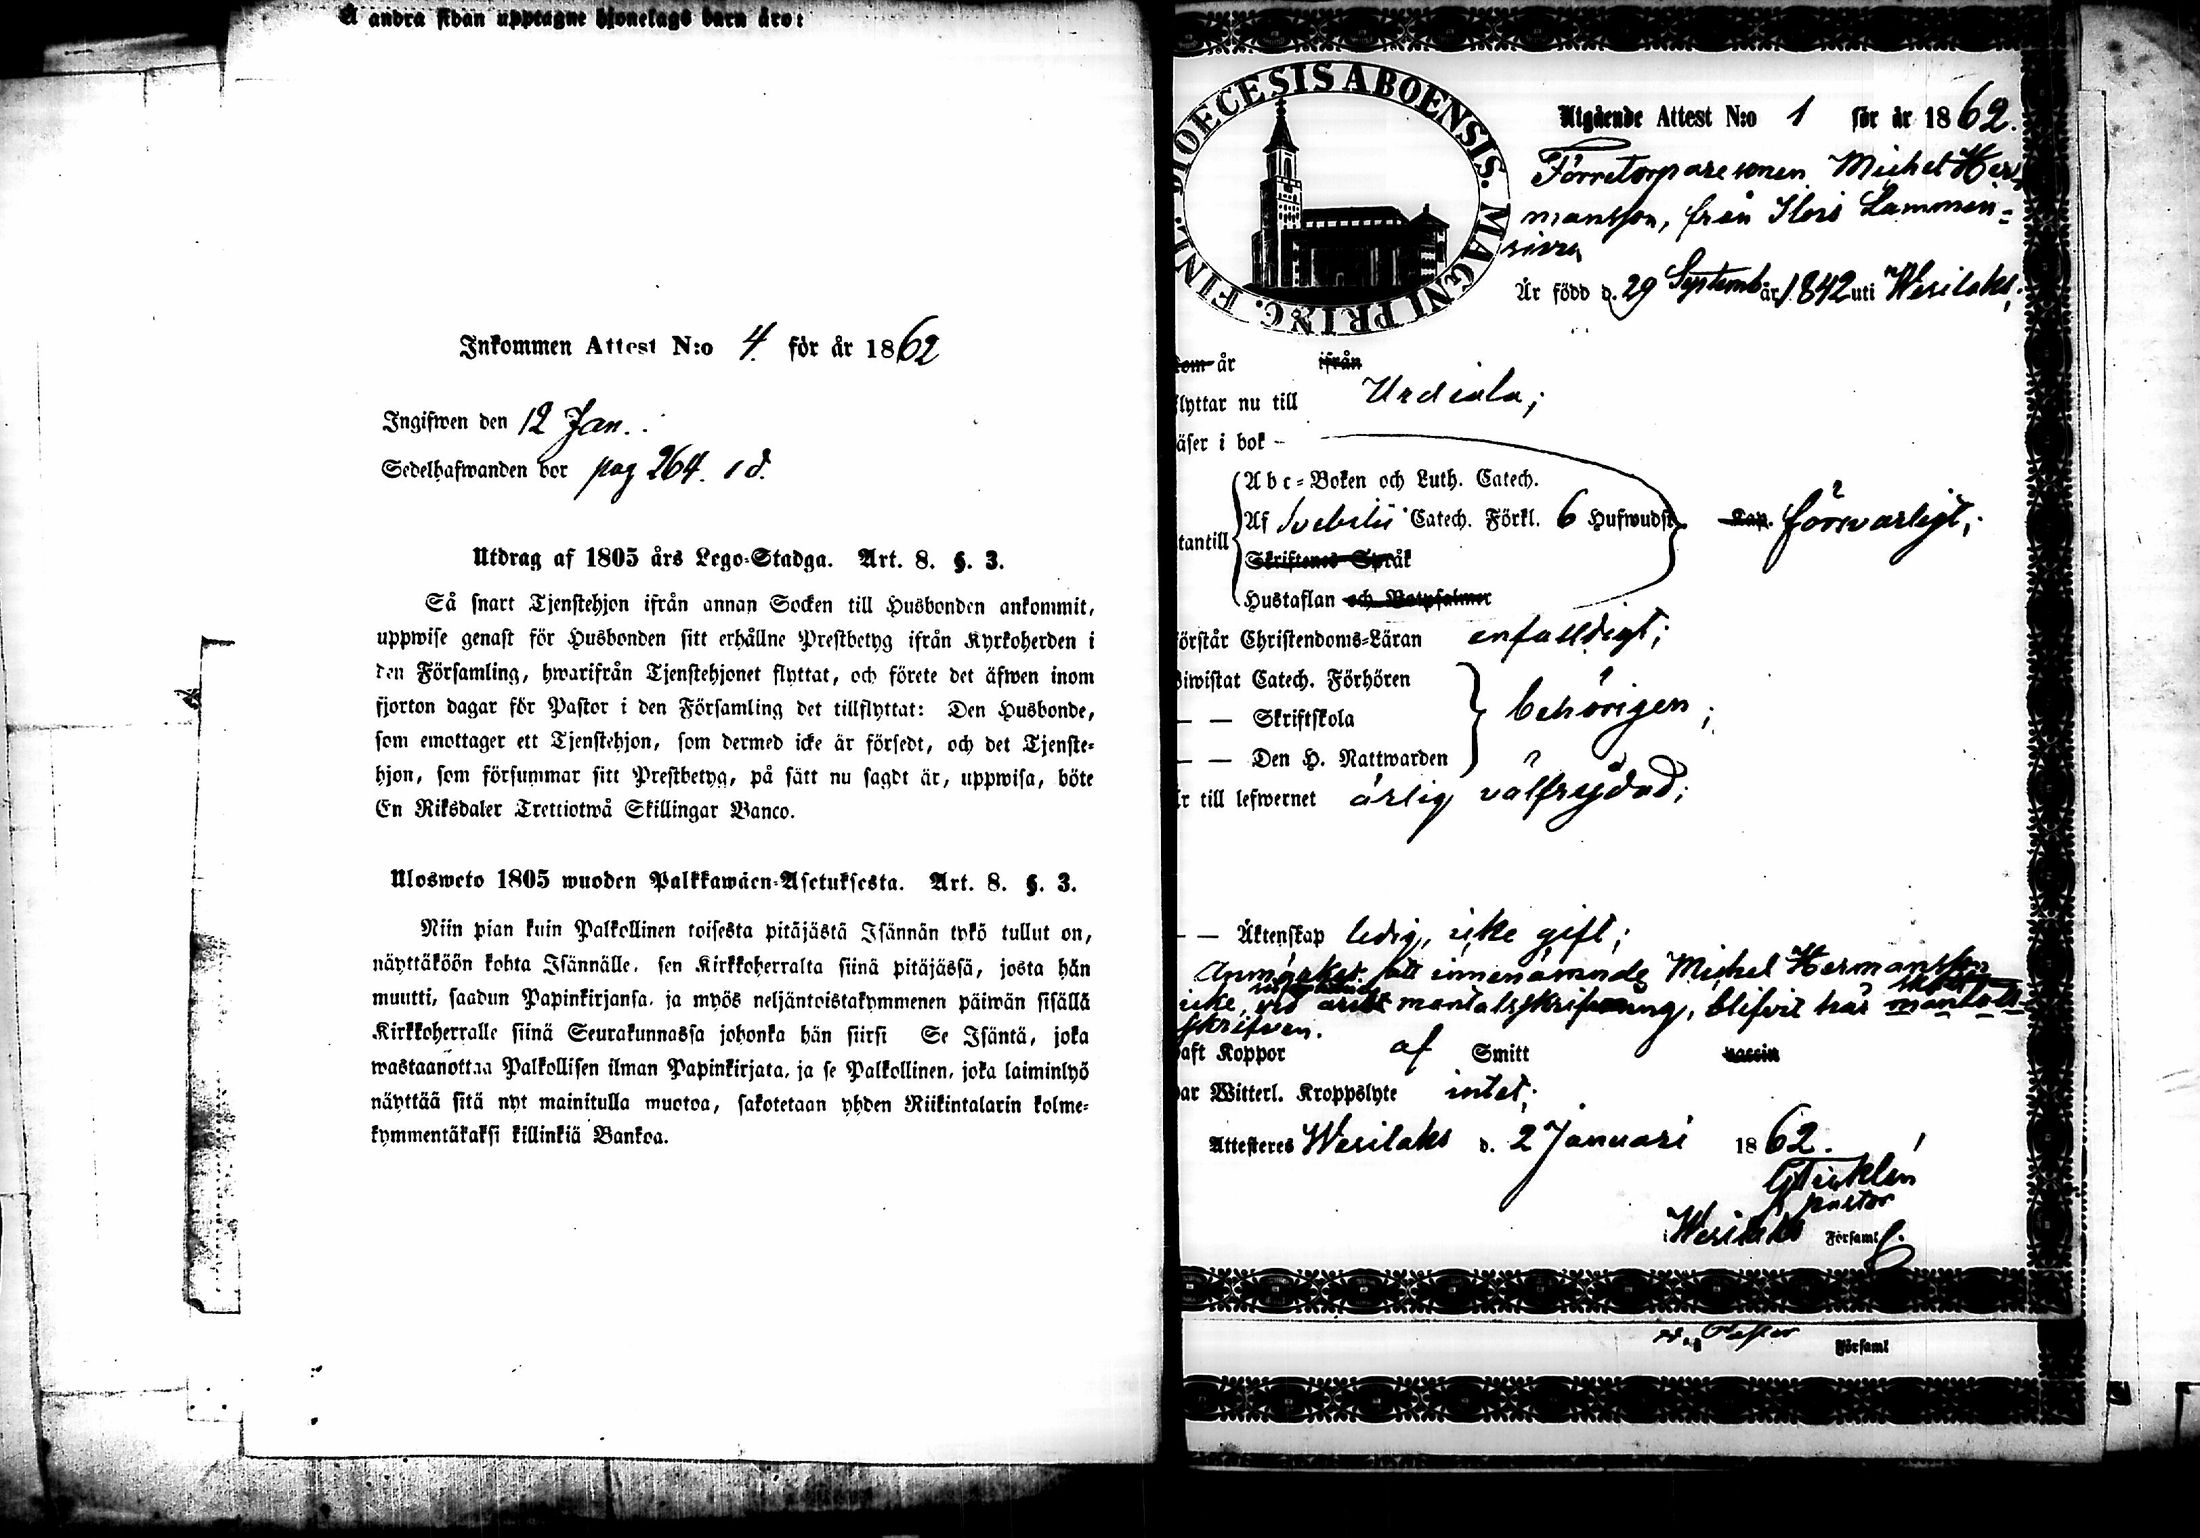 å andra sidan upptagne hjonelags barn äro:
Inkommen Attest N:o 4. för år 1862
Ingifwen den 12 Jan.
Sedelhafwanden bor pag 264.
Utdrag af 1805 års Lego-Stadga. Art. 8. §. 3.
Så snart Tjenstehjon ifrån annan Socken till Husbonden ankommit,
uppwise genast för Husbonden sitt erhållne Prestbetyg ifrån Kyrkoherden i
den Församling, hwarifrån Tjenstehjonet flyttat, och förete det äfwen inom
fjorton dagar för Pastor i den Församling det tillflyttat: Den Husbonde,
som emottager ett Tjenstehjon, som dermed icke är försedt, och det Tjenste-
hjon, som försummar sitt Prestbetyg, på sätt nu sagdt är, uppwisa, böte
En Riksdaler Trettiotwå Skillingar Banco.
Ulosweto 1805 wuoden Palkkawäen-Asetuksesta. Art. 8. §. 3.
Niin pian kuin Palkollinen toisesta pitäjästä Isännän tykö tullut on,
näyttäköön kohta Isännälle, sen Kirkkoherralta siinä pitäjässä, josta hän
muutti, saadun Papinkirjansa, ja myös neljäntoistakymmenen päiwän sisällä
Kirkkoherralle siinä Seurakunnassa johonka hän siirsi Se Isäntä, joka
wastaanottaa Palkollisen ilman Papinkirjata, ja se Palkollinen, joka laiminlyö
näyttää sitä nyt mainitulla muotoa, sakotetaan yhden Riikintalarin kolme-
kymmentäkaksi killinkiä Bankoa.
DIOECESIS ABOENSIS. MAGNI PRINC. FINL.
Utgående Attest N:o 1 för år 1862.
Förretorparesonen Michel Her-
mansson, från
Är född d. 29 Septemb år 1842 uti Wesilaks;
år ifrån
flyttar nu till Urdiala;
läser i bok -
Abc-Boken och Luth. Catech.
utantill Af Svebilii Catech. Förkl. 6 Hufwudst. Kap. försvarligt;
Skriftenes Språk
Hustaflan och Botpsalmer
förstår Christendoms-Läran enfaldigt;
Biwistat Catech. Förhören
— — Skriftskola behörigen;
— — Den H. Nattwarden
är till lefwernet ärlig välfrejdad;
— — Äktenskap ledig, icke gift;
Anmärkes att innenämnde Michel Hermansson
icke vid mantalsskrifning, blifvit här mantals-
skrifven.
haft Koppor af Smitt vaccin
har Witterl. Kroppslyte intet;
Attesteres Wesilaks d. 2 Januari 1862.
pastor
Wesilaks Församl.
Pastor
Församl